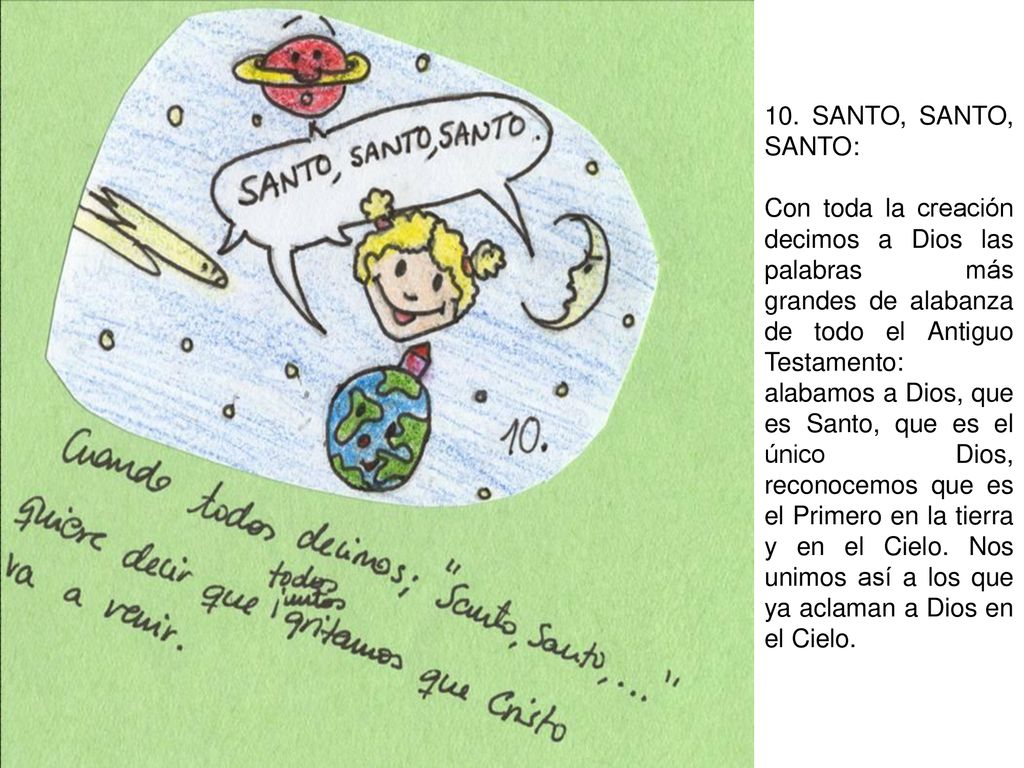 SANTO, SANTO, SANTO.
10.
Cuando todos decimos; "Santo, Santo,..."
quiere decir que todos juntos gritamos que Cristo
va a venir.
10. SANTO, SANTO,
SANTO:
Con toda la creación
decimos a Dios las
palabras más
grandes de alabanza
de todo el Antiguo
Testamento:
alabamos a Dios, que
es Santo, que es el
único Dios,
reconocemos que es
el Primero en la tierra
y en el Cielo. Nos
unimos así a los que
ya aclaman a Dios en
el Cielo.